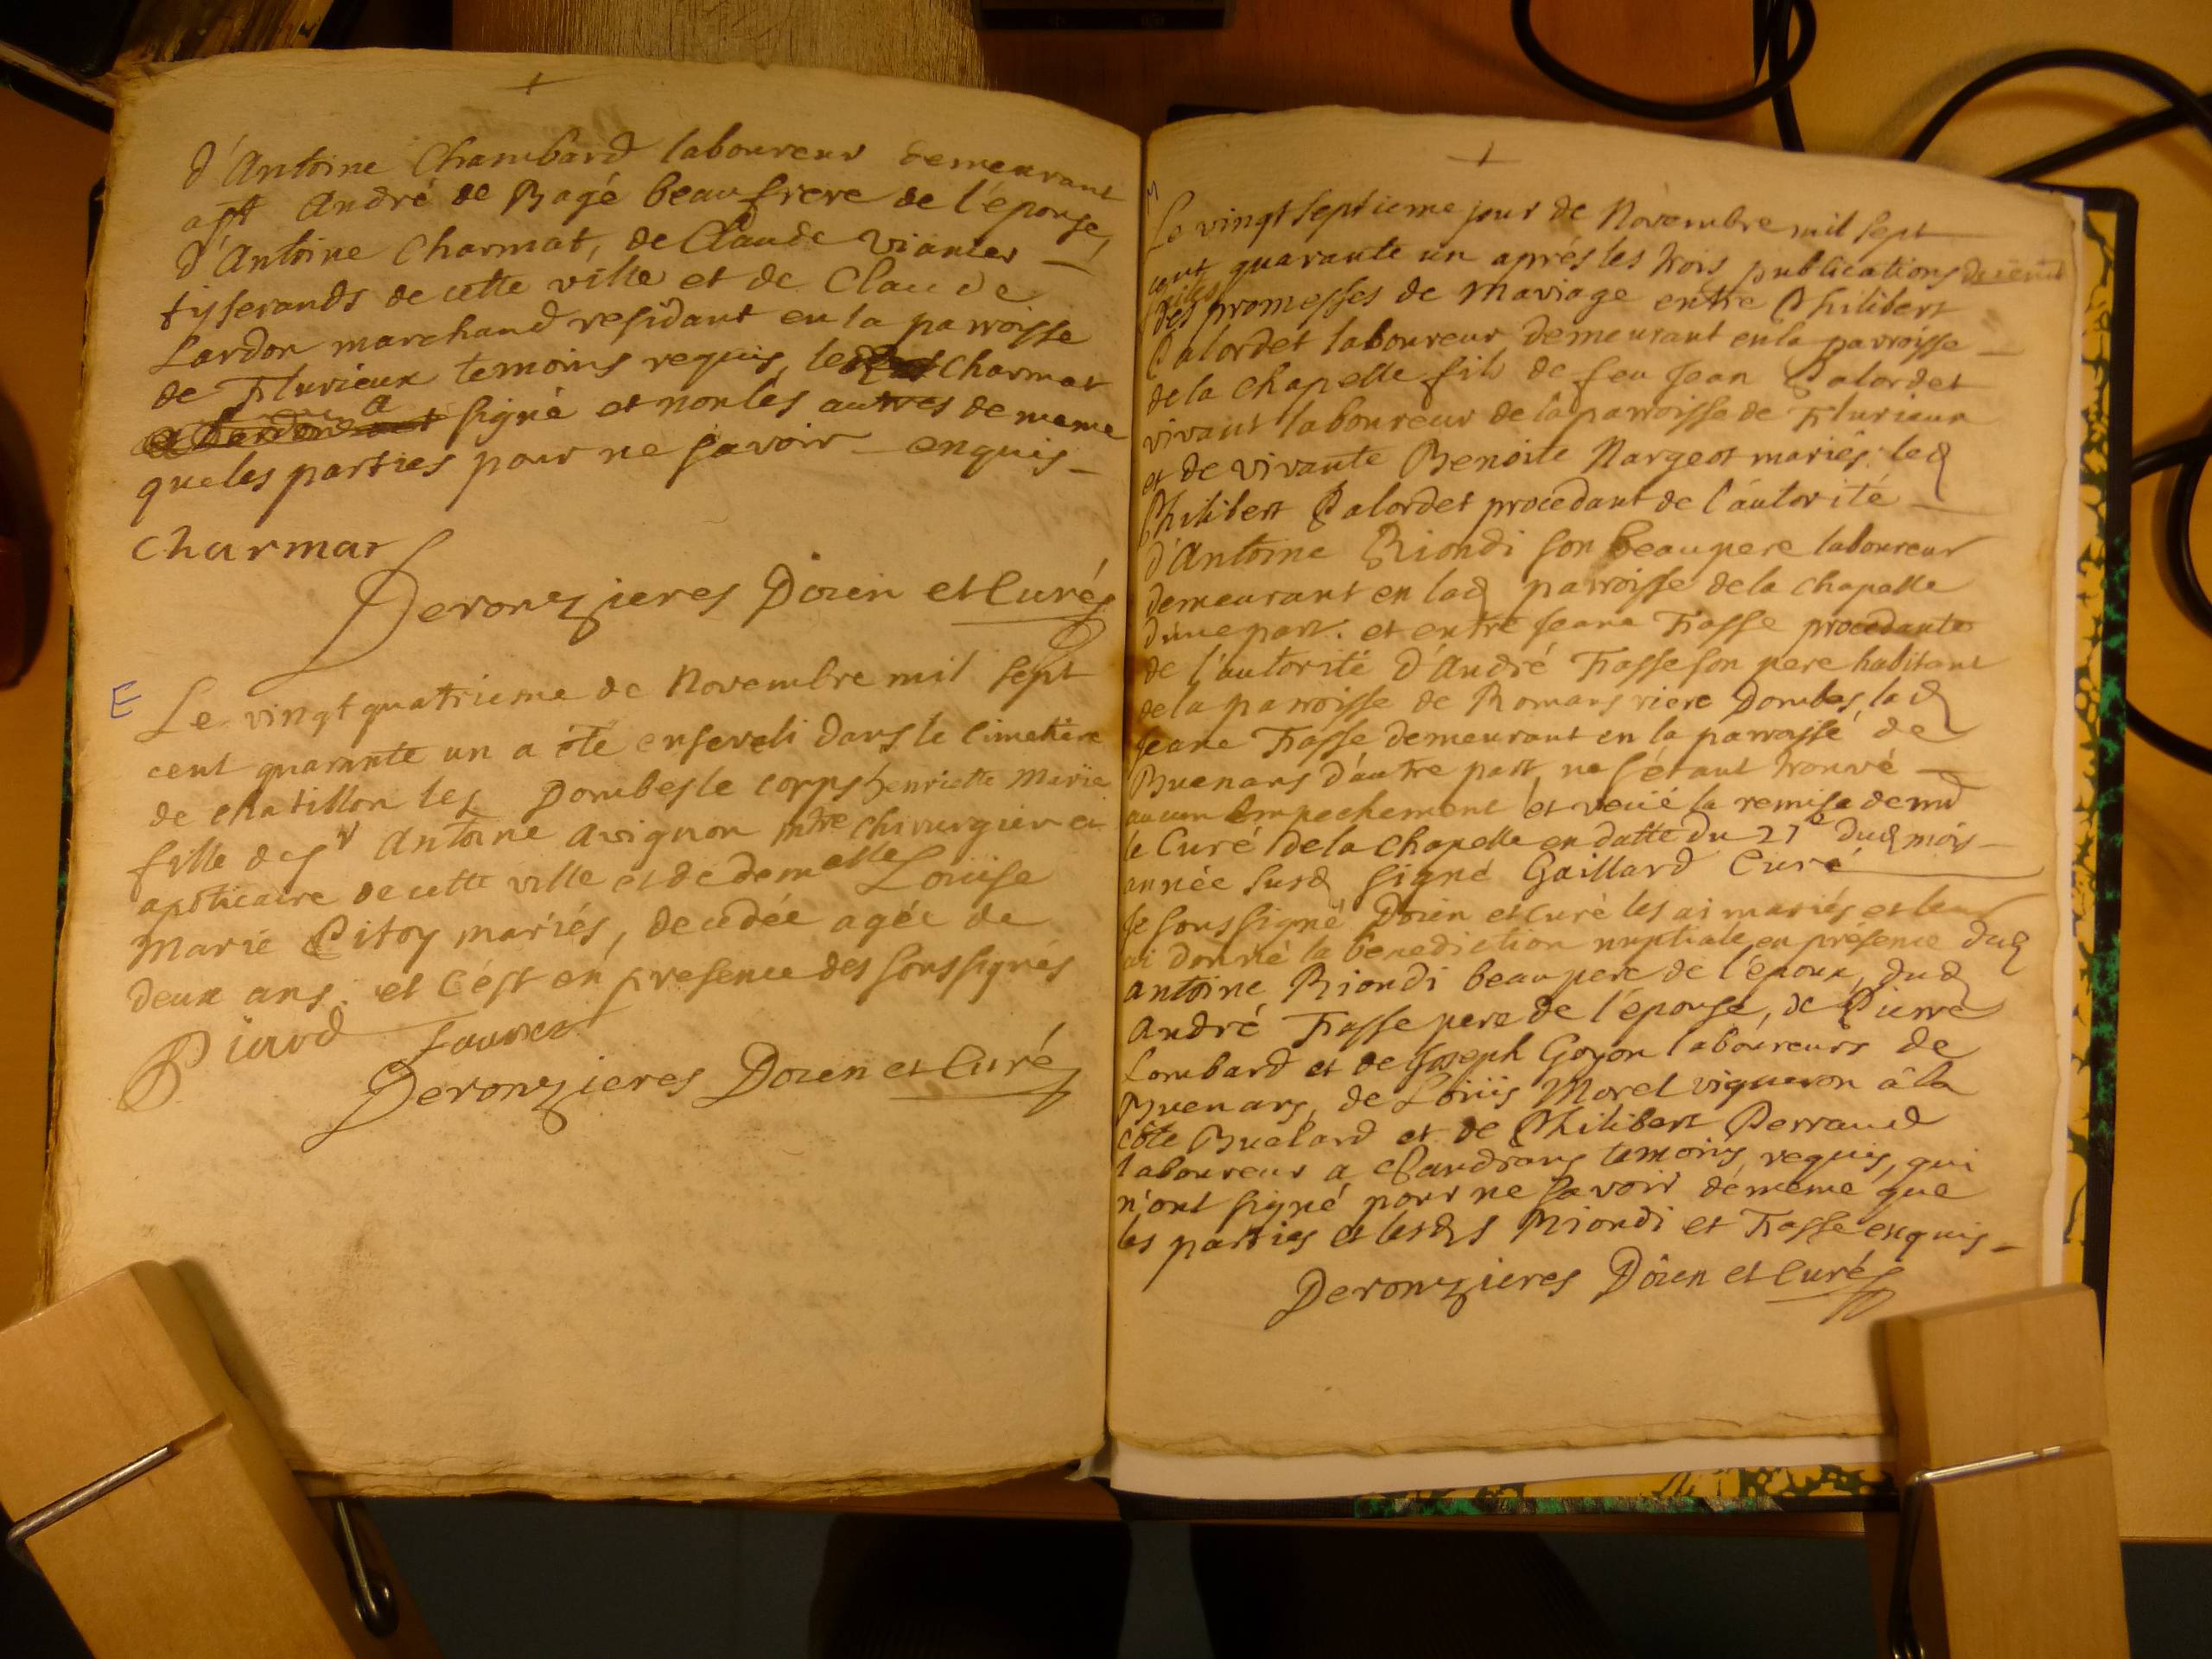 d'Antoine Chambard laboureur demeurant
a St André de Bagé beaufrere de l'épouse,
d'Antoine Charmat, de Claude Viantes
tisserands de cette ville et de Claude
Lardon marchand residant en la parroisse
de Flurieux temoins requis, led Charmat
a signé et non les autres de meme
que les parties pour ne savoir enquis
Charmat
Deronzieres Doien et Curé
E
Le vingtquatrieme de Novembre mil sept
cent quarante un a été enseveli dans le cimetiere
de chatillon les Dombes le corps henriette Marie
fille de sr Antoine Avignon mtre chirurgien et
apoticaire de cette ville et de demelle Louise
Marie Pitoy mariés, decedée agée de
deux ans. et c'est en presence des soussignés
Piard
Deronzieres Doien et Curé
M
Le vingt septieme jour de Novembre mil sept
cent quarante un aprés les trois publications
faites
des promesses de mariage entre Philibert
Palordet laboureur demeurant en la parroisse
de la chapelle fils de feu Jean Palordet
vivant laboureur de la parroisse de Flurieux
et de vivante Benoite Nargeot mariés: led
Philibert Palordet procedant de l'autorité
d'Antoine Riondi son beaupere laboureur
demeurant en lad parroisse de la chapelle
d'une part. et entre Jeane Frasse procedante
de l'autorité d'André Frasse son pere habitant
de la parroisse de Romans riere Dombes, lad
Jeane Frasse demeurant en la parroisse de
Buenans d'autre part, ne s'étant trouvé
aucun Empechement et veüé la remise de mr
le Curé de la chapelle en datte du 27e dud mois
année susd signé Gaillard Curé
Je soussigné Doien et curé les ai mariés et leur
ai donné la benediction nuptiale en présence dud
Antoine Riondi beaupere de l'epoux, dud
André Frasse pere de l'épouse, de Pierre
Lombard et de Joseph Goyon laboureurs de
Buenans, de Loüis Morel vigneron à la
côte Buelard et de Philibert Perraud
laboureur a Chandrans temoins requis, qui
n'ont signé pour ne savoir de meme que
les parties et lesds Riondi et Frasse enquis
Deronzieres Doien et Curé